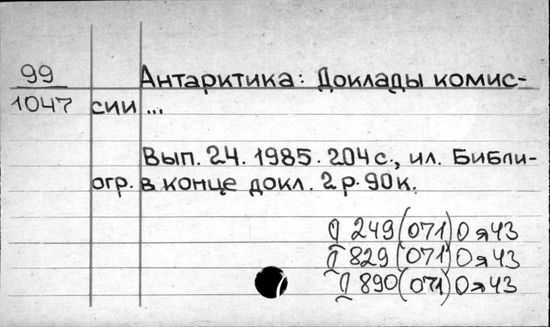 99
1047
Антарктика: Доклады комис-
сии ...
Вып. 24. 1985. 204 с., ил. Библи-
огр. в конце докл. 2 р. 90 к.
249 (071) 0 я43
829 (071) 0 я43
890 (071) 0 я43